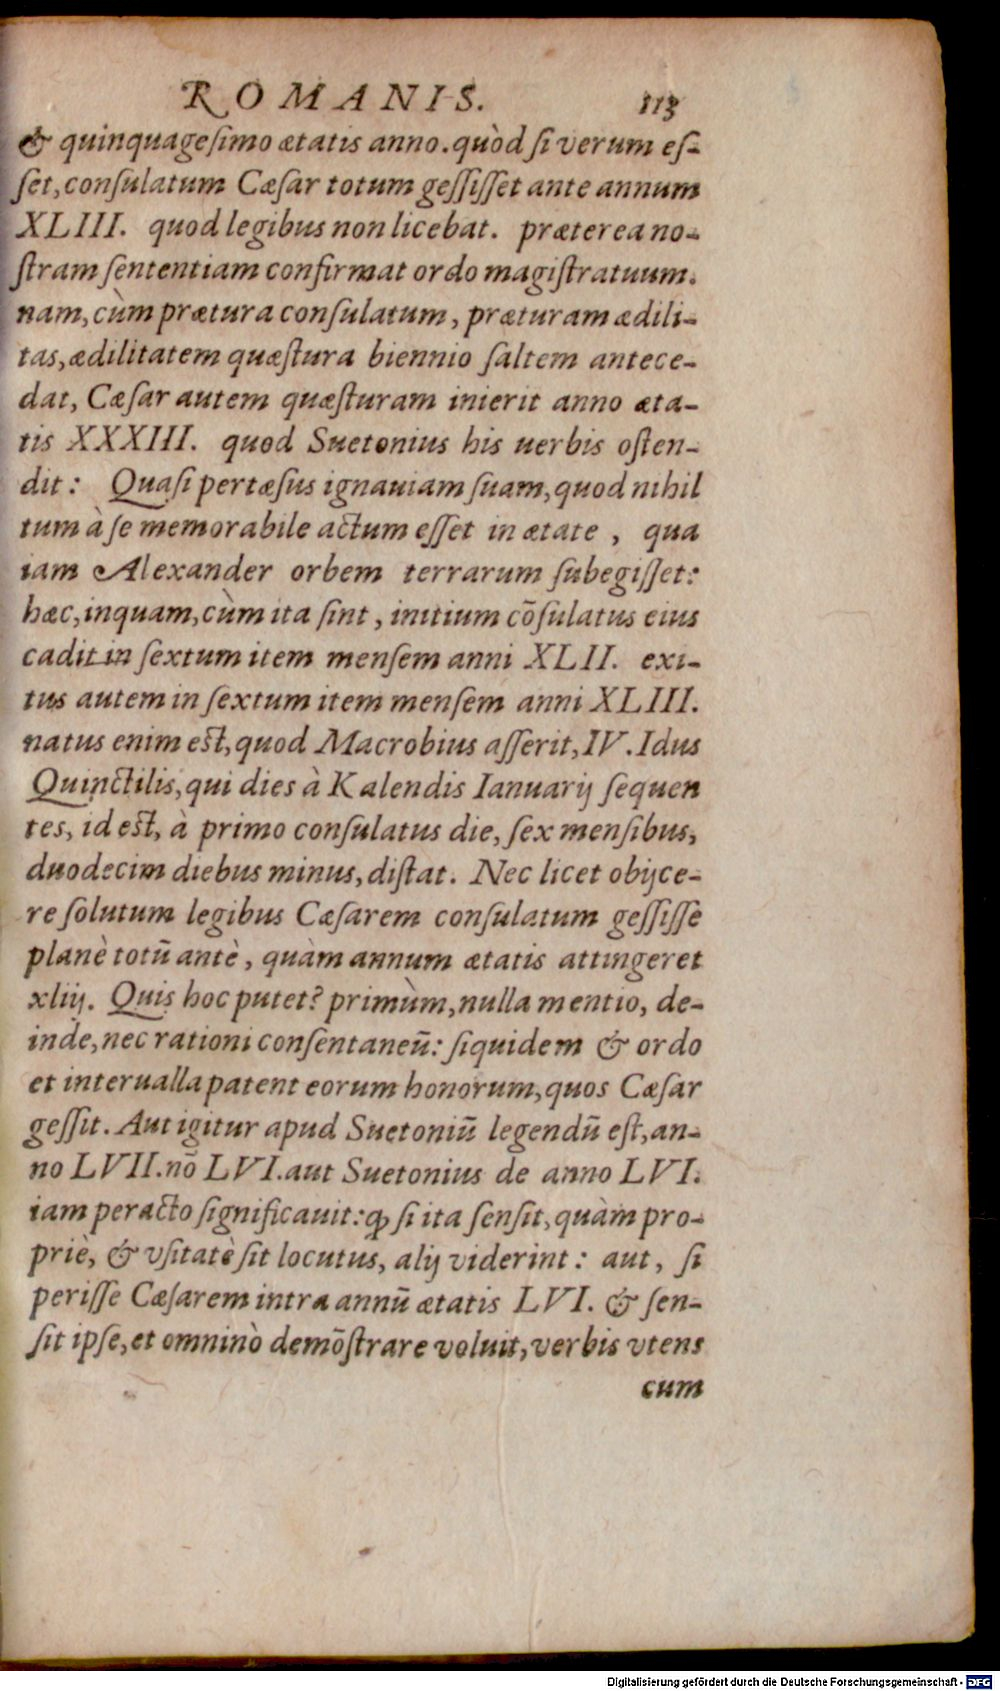 ROMANIS. 113
& quinquageſimo ætatis anno. quòd ſi verum eſ-
ſet, conſulatum Cæſar totum geſſiſſet ante annum
XLIII. quod legibus non licebat. præterea no-
ſtram ſententiam confirmat ordo magiſtratuum.
nam, cùm prætura conſulatum, præturam ædili-
tas, ædilitatem quæſtura biennio ſaltem antece-
dat, Cæſar autem quæſturam inierit anno æta-
tis XXXIII. quod Suetonius his uerbis oſten-
dit: Quaſi pertæſus ignauiam ſuam, quod nihil
tum à ſe memorabile actum eſſet in ætate, qua
iam Alexander orbem terrarum ſubegiſſet:
hæc, inquam, cùm ita ſint, initium cõſulatus eius
cadit in ſextum item menſem anni XLII. exi-
tus autem in ſextum item menſem anni XLIII.
natus enim eſt, quod Macrobius aſſerit, IV. Idus
Quinctilis, qui dies à Kalendis Ianuarij ſequen
tes, id eſt, à primo conſulatus die, ſex menſibus,
duodecim diebus minus, diſtat. Nec licet obijce-
re ſolutum legibus Cæſarem conſulatum geſſiſſe
planè totũ antè, quàm annum ætatis attingeret
xliij. Quis hoc putet? primùm, nulla mentio, de-
inde, nec rationi conſentaneũ: ſiquidem & ordo
et interualla patent eorum honorum, quos Cæſar
geſſit. Aut igitur apud Suetoniũ legendũ eſt, an-
no LVII. nõ LVI. aut Suetonius de anno LVI.
iam peracto ſignificauit: ꝙ ſi ita ſenſit, quàm pro-
priè, & vſitatè ſit locutus, alij viderint: aut, ſi
periſſe Cæſarem intra annũ ætatis LVI. & ſen-
ſit ipſe, et omninò demõſtrare voluit, verbis vtens
cum
Digitalisierung gefördert durch die Deutsche Forschungsgemeinschaft - DFG